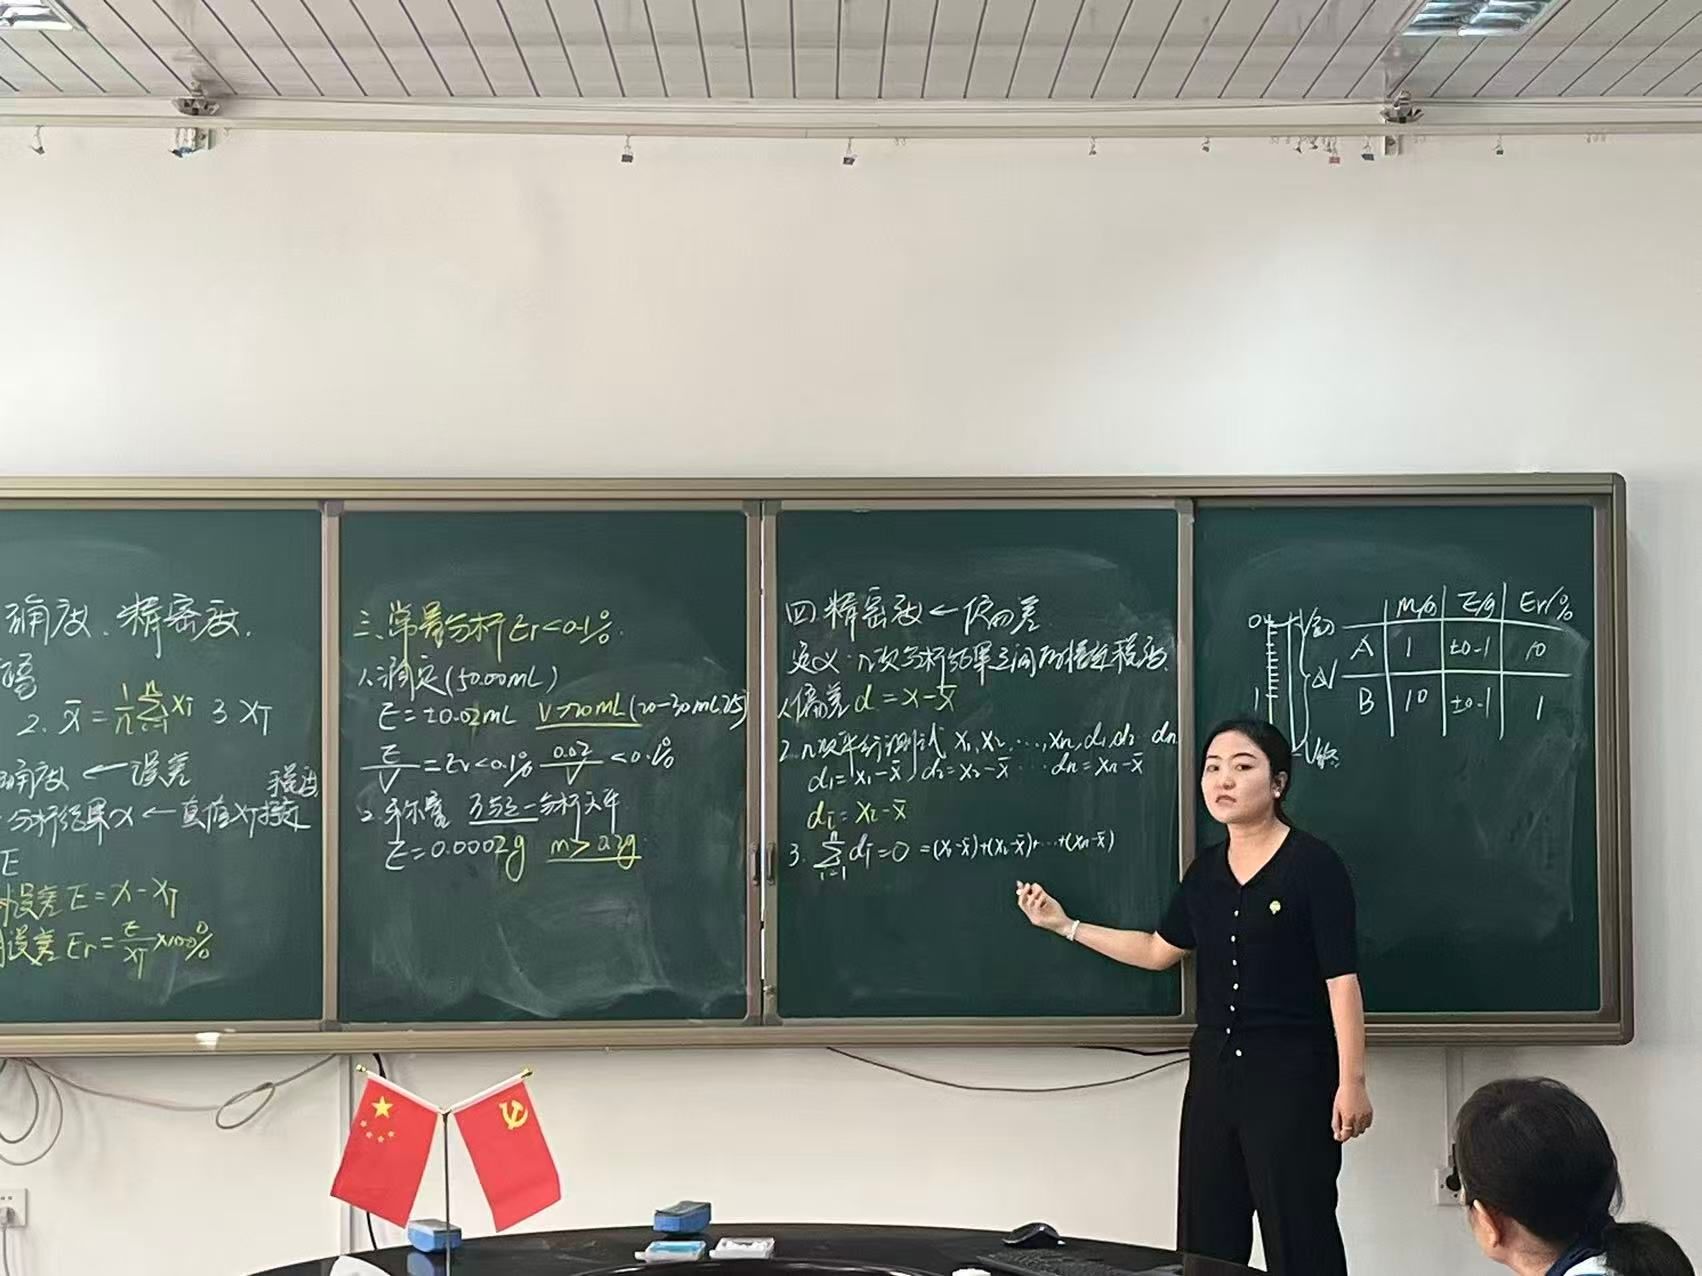 确度、精密度.
2. x̄ = 1/n Σ(i=1→n) xi 3 xT
确度 ← 误差
程度
分析结果x ← 真值xT接近
E
误差 E = x - xT
误差 Er = E/xT ×100%
三、常量分析 Er<0.1%.
1.滴定(50.00mL)
E=±0.02mL V>20mL(20-30mL 25)
E/V = Er<0.1% 0.02/V <0.1%
2.称量 万分之一分析天平
E=0.0002g m>0.2g
四.精密度 ← 偏差
定义:n次分析结果之间的接近程度.
1.偏差 d = x-x̄
2.n次平行测试 x1,x2,…,xn,d1,d2 dn
d1=x1-x̄ d2=x2-x̄ … dn=xn-x̄
di=xi-x̄
3. Σ(i=1→n) di=0 =(x1-x̄)+(x2-x̄)+…+(xn-x̄)
m/g E/g Er/%
A 1 ±0.1 10
B 10 ±0.1 1
0 V初
ΔV
1
V终